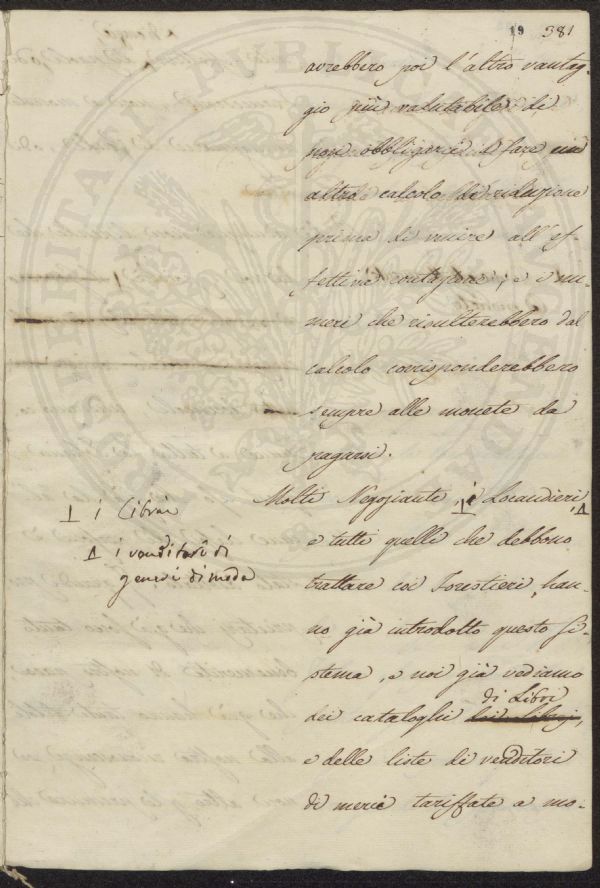 19 381
avrebbero poi l'altro vantag-
gio più valutabile di
non obbligarci a fare un
altro calcolo di riduzione
prima di venire all'ef-
fettiva contazione; e i nu-
meri che risulterebbero dal
calcolo corrisponderebbero
sempre alle monete da
pagarsi.
Molti Negozianti, i Locandieri,
⊥ i Librai
e tutti quelli che debbono
⊥ i venditori di
generi di moda
trattare coi Forestieri, han-
no già introdotto questo Si-
stema, e noi già vediamo
di Libri
dei cataloghi
e delle liste di venditori
di merci tariffate a mo-